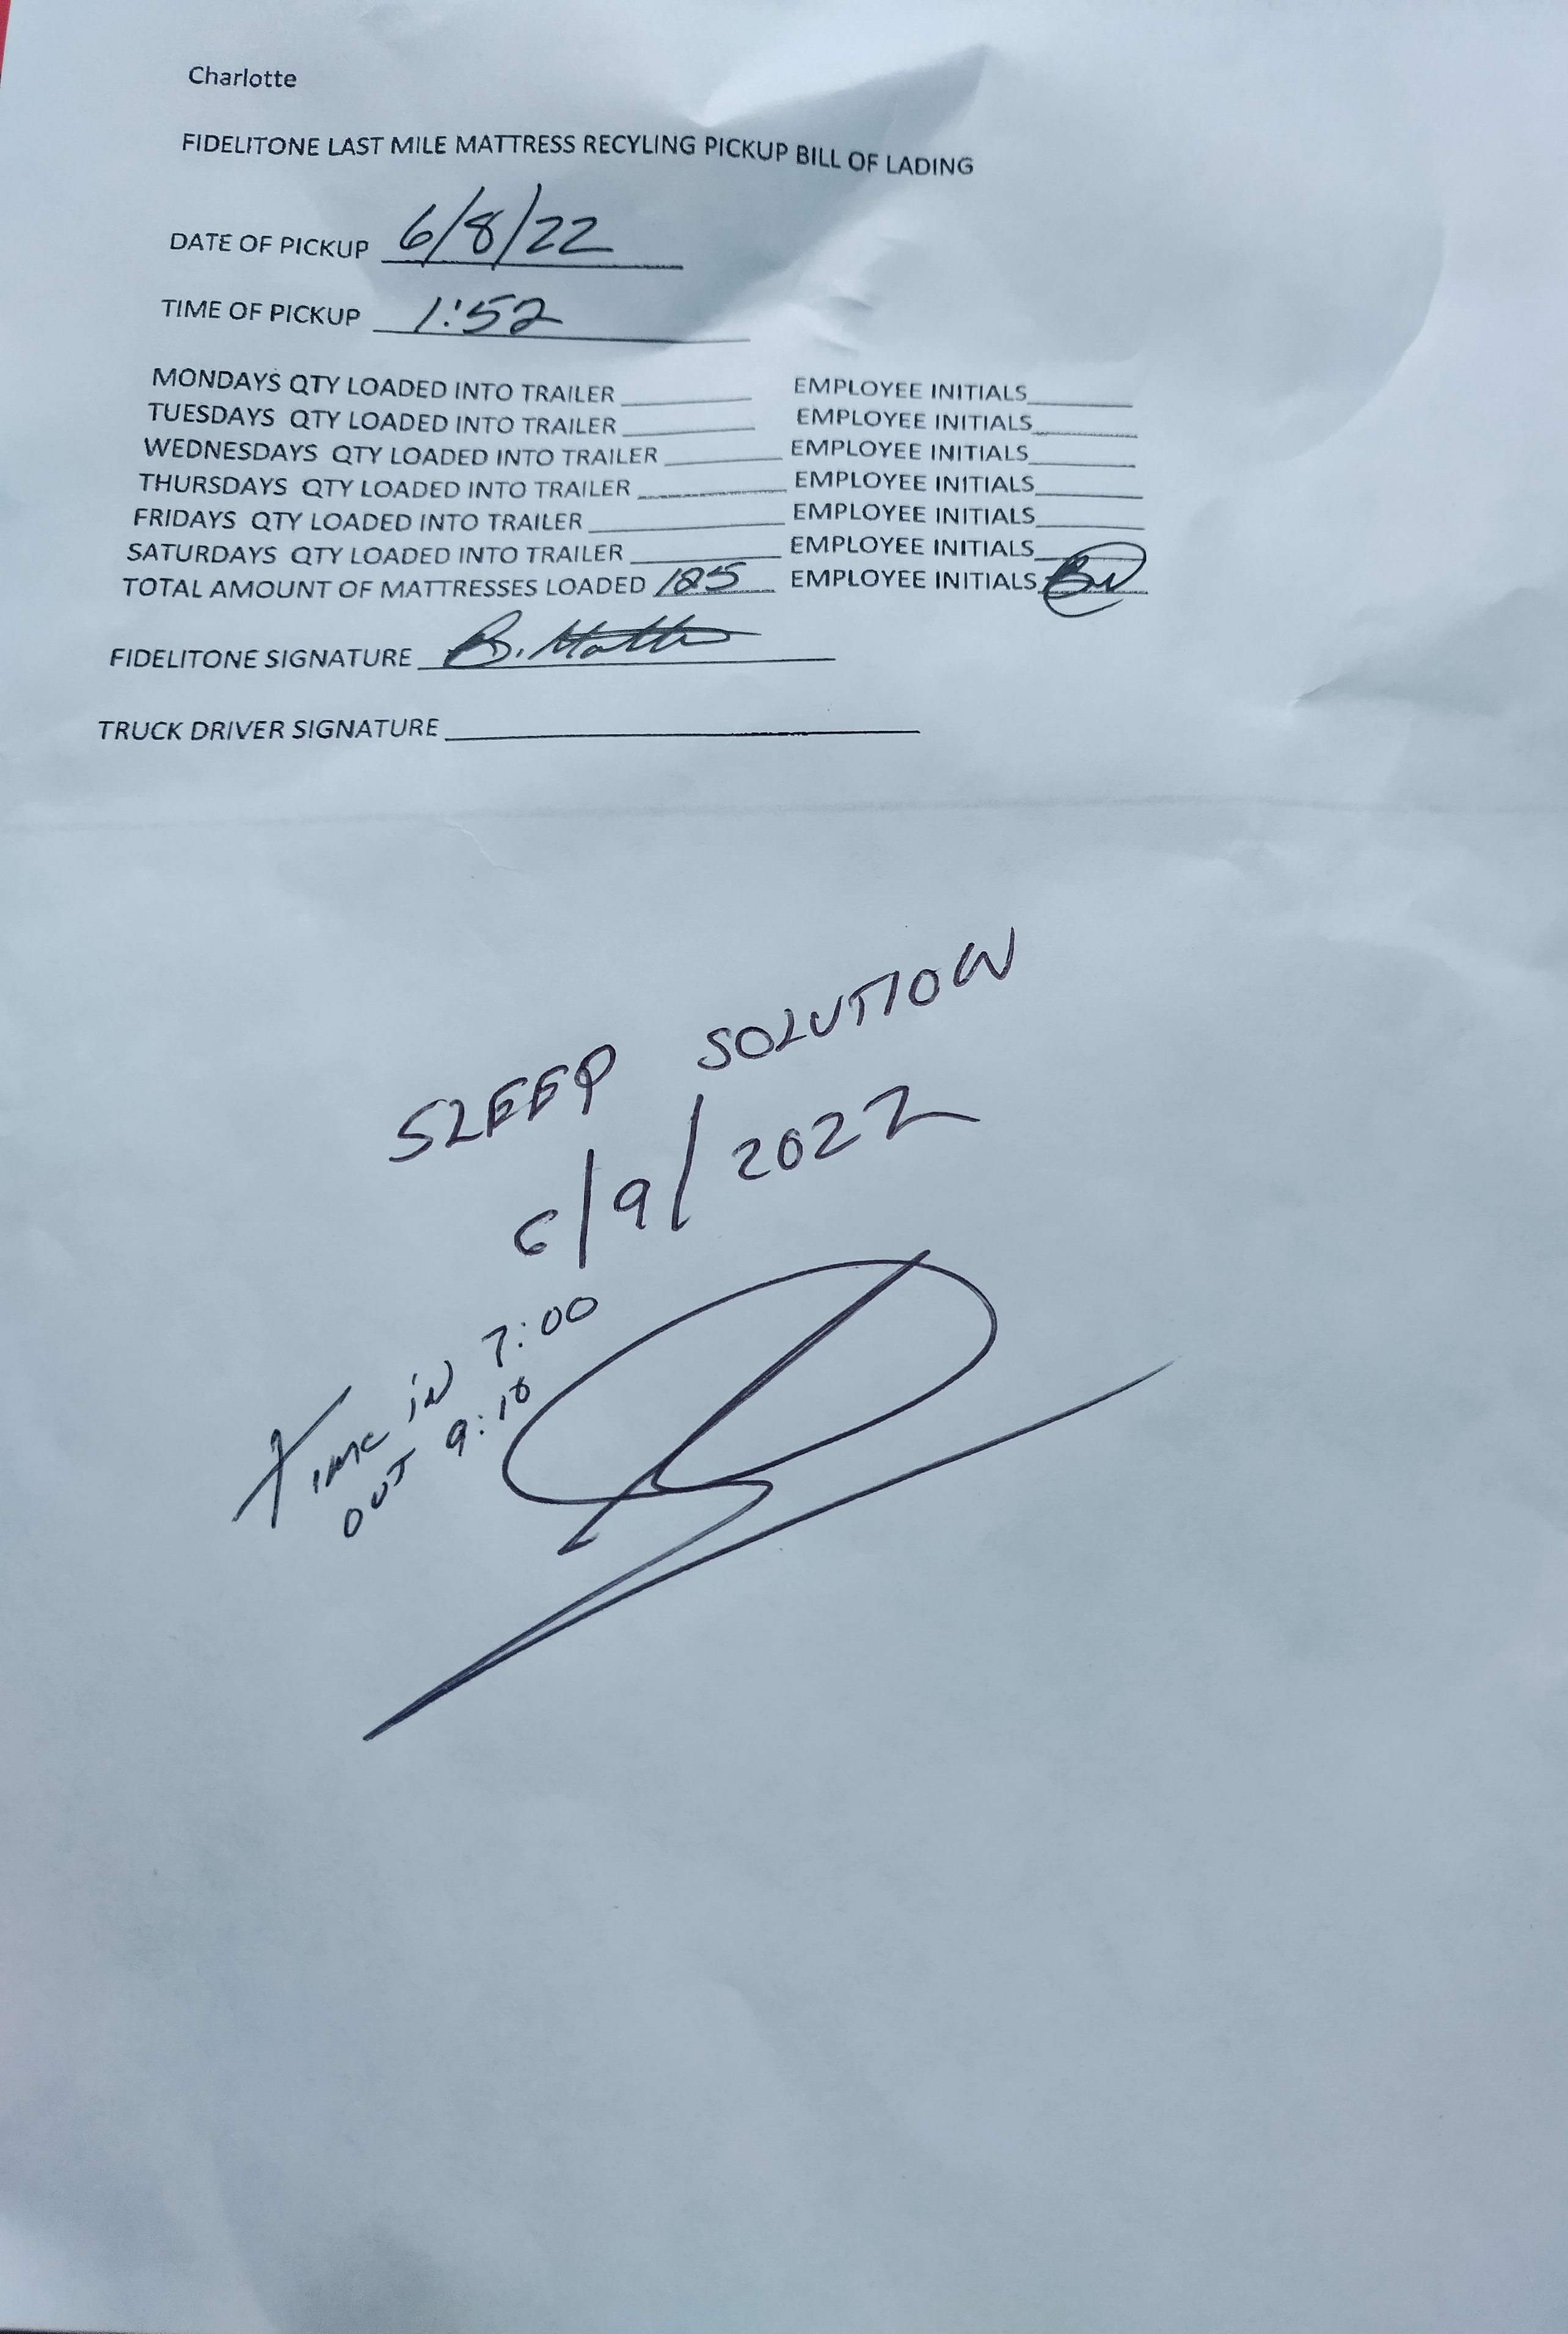 Charlotte
FIDELITONE LAST MILE MATTRESS RECYLING PICKUP BILL OF LADING
DATE OF PICKUP 6/8/22
TIME OF PICKUP 1:52
MONDAYS QTY LOADED INTO TRAILER EMPLOYEE INITIALS
TUESDAYS QTY LOADED INTO TRAILER EMPLOYEE INITIALS
WEDNESDAYS QTY LOADED INTO TRAILER EMPLOYEE INITIALS
THURSDAYS QTY LOADED INTO TRAILER EMPLOYEE INITIALS
FRIDAYS QTY LOADED INTO TRAILER EMPLOYEE INITIALS
SATURDAYS QTY LOADED INTO TRAILER EMPLOYEE INITIALS
TOTAL AMOUNT OF MATTRESSES LOADED 185 EMPLOYEE INITIALS
FIDELITONE SIGNATURE B.
TRUCK DRIVER SIGNATURE
SLEEP SOLUTION
6/9/2022
TIME IN 7:00
OUT